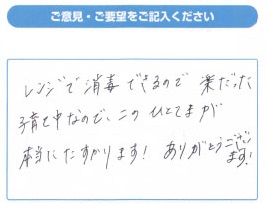 ご意見・ご要望をご記入ください
レンジで消毒できるので楽だった
子育て中なので、このひとてまが
本当にたすかります! ありがとうござい
ます!